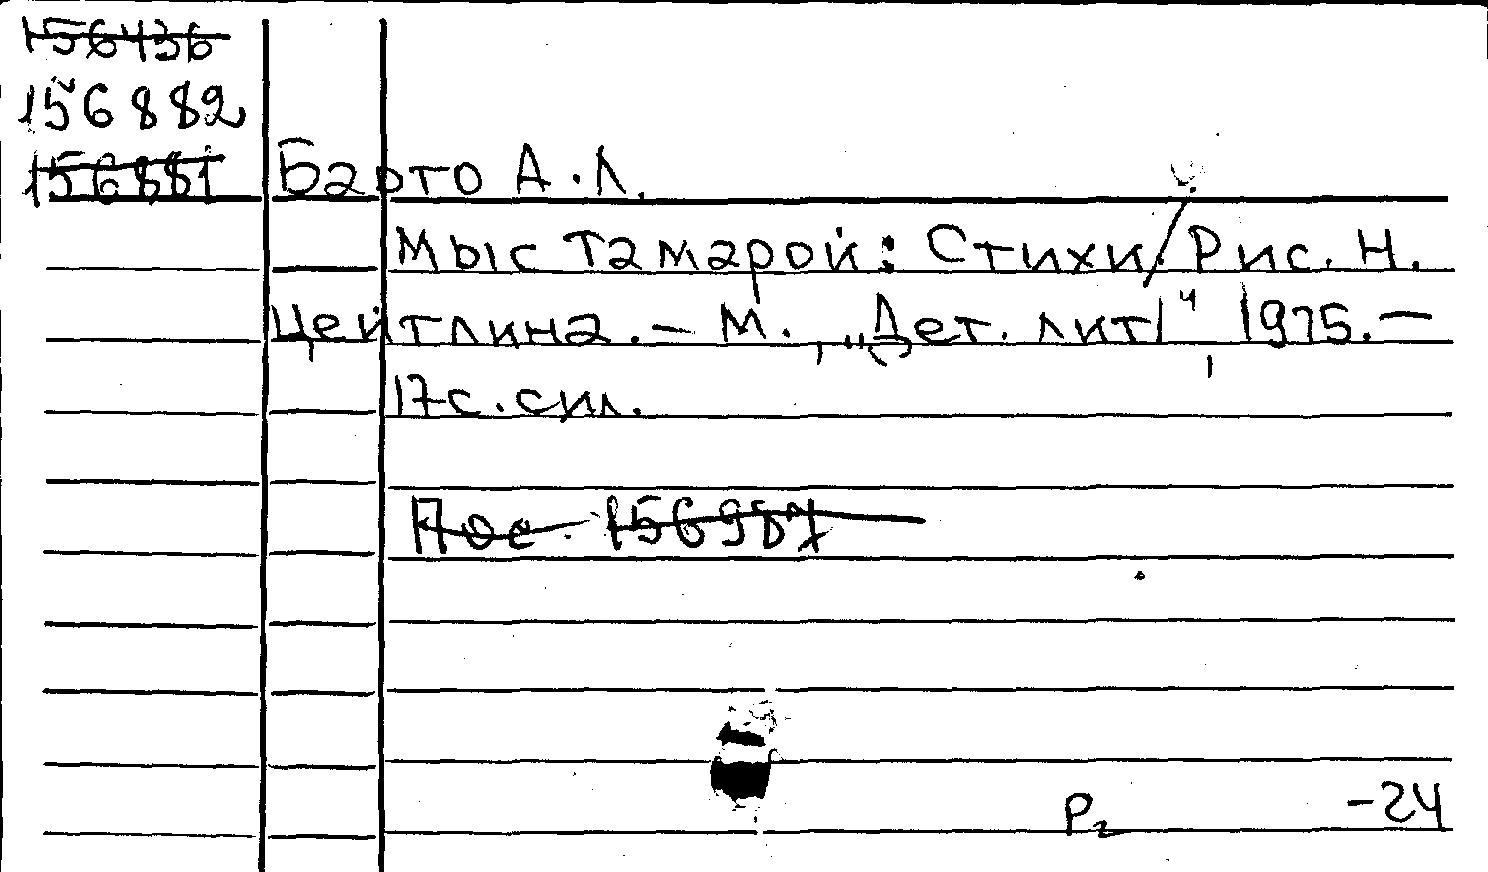 156436
156882
156881
Барто А.Л.
Мыс Тамарой: Стихи/Рис. Н.
Цейтлина. – М., „Дет. лит", 1975. –
17с. сил.
Пос. 156987
Р2 -24